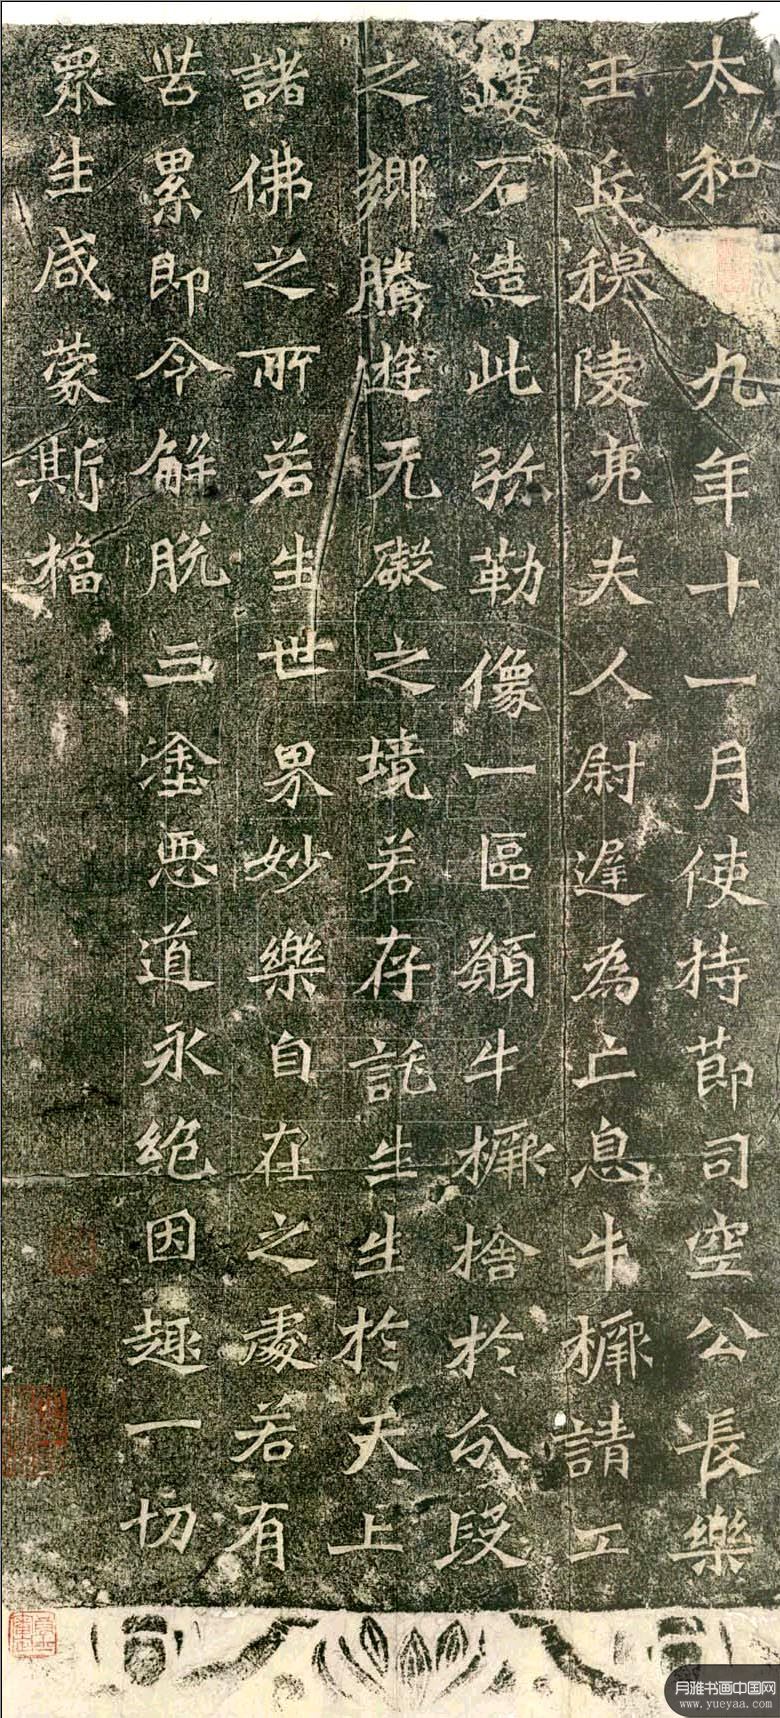 太和九年十一月使持節司空公長樂
王丘穆陵亮夫人尉遲為亡息牛橛請工
鏤石造此弥勒像一區願牛橛捨於分段
之鄉騰遊无礙之境若存託生生於天上
諸佛之所若生世界妙樂自在之處若有
苦累即令解脱三塗惡道永絕因趣一切
眾生咸蒙斯福
月雅书画中国网
www.yueyaa.com